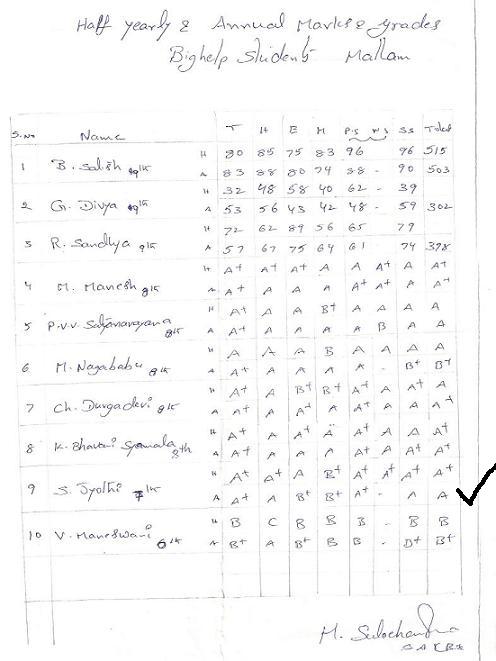 Half yearly & Annual Marks & grades
Bighelp Students Mallam
S.No Name T H E M P.S N.S SS Total
H 80 85 75 83 96 96 515
1 B. Satish 9th A 83 88 80 74 88 - 90 503
H 32 48 58 40 62 - 39
2 G. Divya 9th A 53 56 43 42 48 - 59 302
H 72 62 89 56 65 79
3 R. Sandhya 9th A 57 67 75 64 61 74 398
H A+ A+ A+ A A A+ A A+
4 M. Manesh 8th A A+ A A A A+ A+ A A+
H A+ A A B+ A A A A
5 P.V.V. Satyanarayana 8th A A+ A A A A B A A
H A A A B A A A A
6 M. Nagababu 8th A A+ A A A A - B+ B+
H A+ A B+ B+ A+ A A+ A
7 Ch. Durgadevi 8th A A+ A A+ A A+ A+ A A+
H A+ A+ A+ A A+ A A A+
8 K. Bhavani Syamala 8th A A+ A A A A+ A+ A+ A+
H A+ A+ A B+ A+ A+ A+ A+
9 S. Jyothi 7th A A+ A B+ B+ A+ - A A
H B C B B B - B B
10 V. Maneswari 6th A B+ A B+ B B - B+ B+